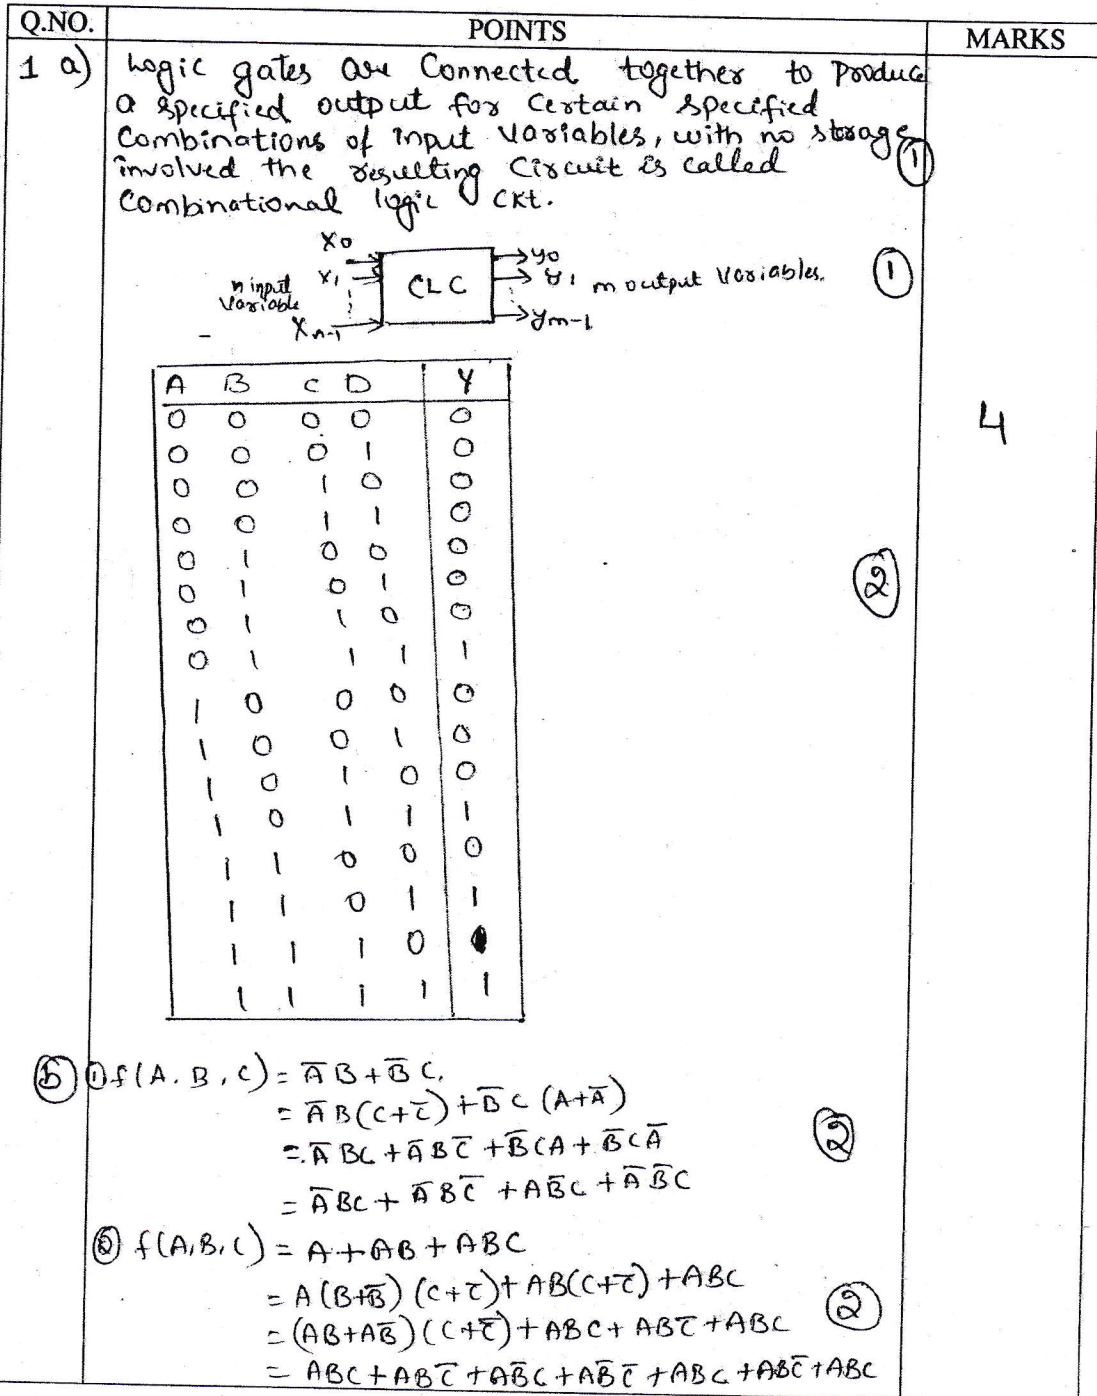 Q.NO. POINTS MARKS
1 a) Logic gates are Connected together to produce
a specified output for Certain specified
Combinations of input variables, with no storage
involved the resulting Circuit is called ①
Combinational logic CKt.
X0 y0
n input X1 CLC y1 m output Variables. ①
variable
Xn-1 ym-1
A B C D Y
0 0 0 0 0
0 0 0 1 0
0 0 1 0 0
0 0 1 1 0
0 1 0 0 0
0 1 0 1 0
0 1 1 0 0
0 1 1 1 1
1 0 0 0 0
1 0 0 1 0
1 0 1 0 0
1 0 1 1 1
1 1 0 0 0
1 1 0 1 1
1 1 1 0
1 1 1 1 1
4
②
b ① f(A.B,C) = A̅B+B̅C.
= A̅B(C+C̅)+B̅C(A+A̅)
= A̅BC+A̅BC̅+B̅CA+B̅CA̅ ②
= A̅BC+A̅BC̅+AB̅C+A̅B̅C
② f(A,B,C) = A+AB+ABC
= A(B+B̅)(C+C̅)+AB(C+C̅)+ABC
= (AB+AB̅)(C+C̅)+ABC+ABC̅+ABC ②
= ABC+ABC̅+AB̅C+AB̅C̅+ABC+ABC̅+ABC